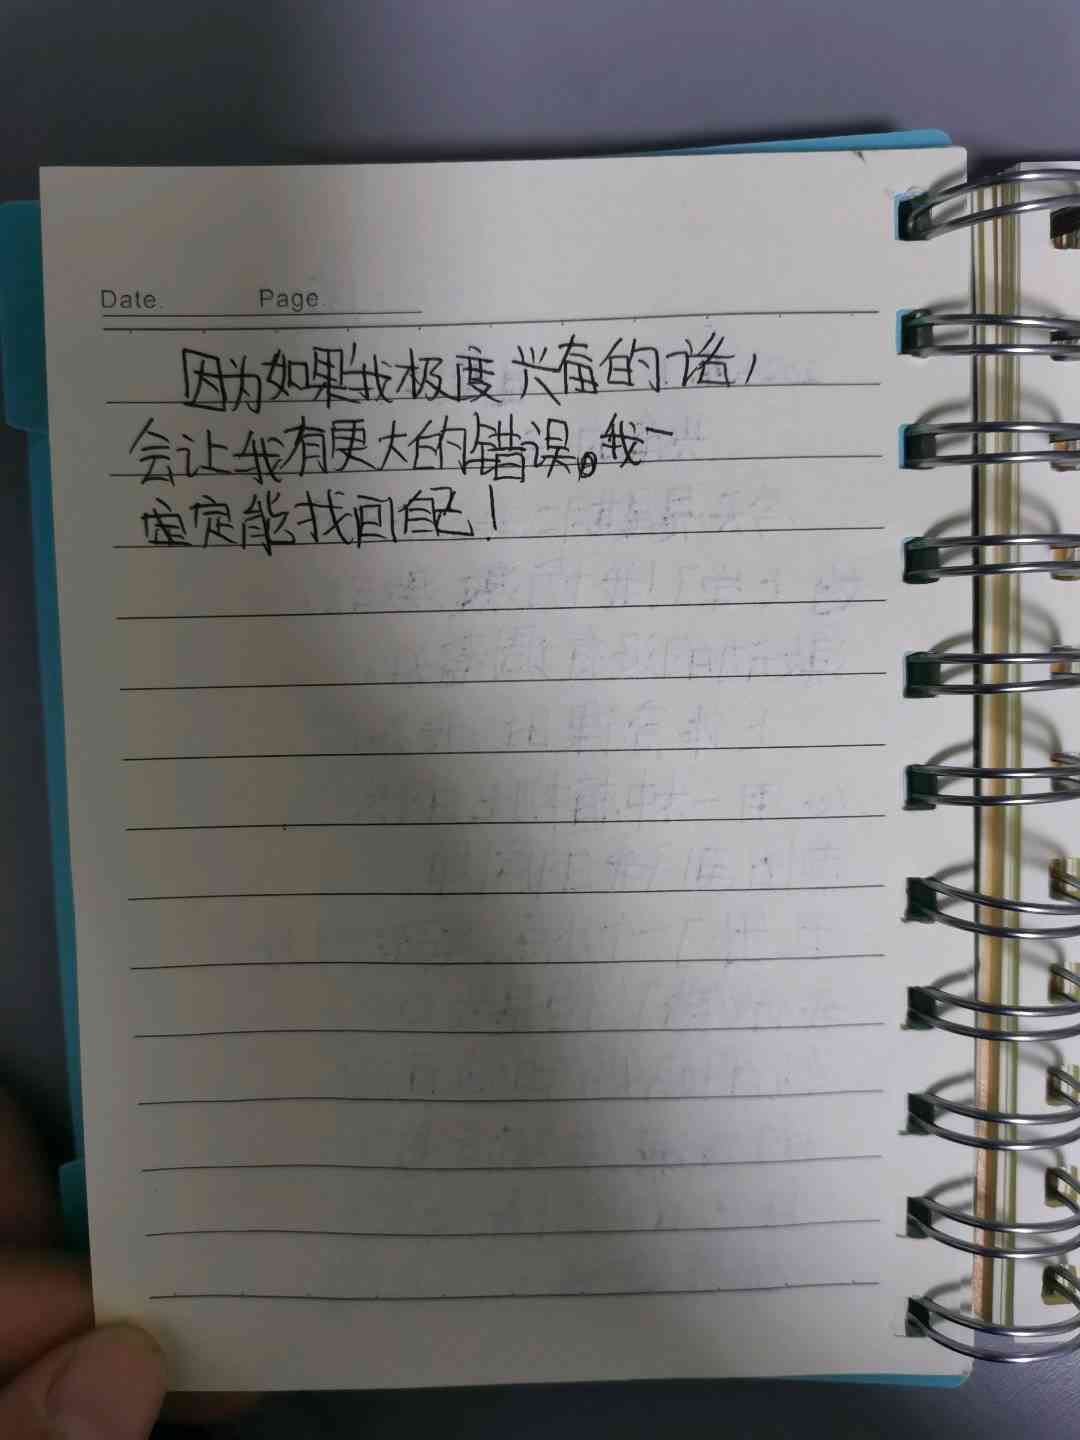 Date. Page.
因为如果我极度兴奋的话，
会让我有更大的错误。我一
定定能找回自己！